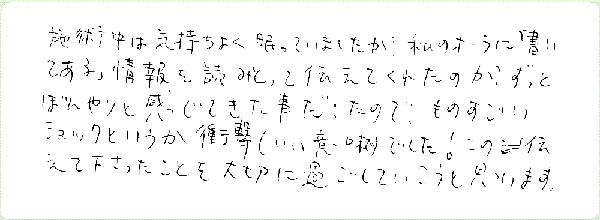 施術中は気持ちよく眠っていましたが、私のオーラに「書い
てある」情報を読みとって伝えてくれたのが、ずっと
ぼんやりと感じてきた事だったので、ものすごい
ショックというか衝撃(いい意味)でした!この伝
えて下さったことを大切に過ごしていこうと思います。